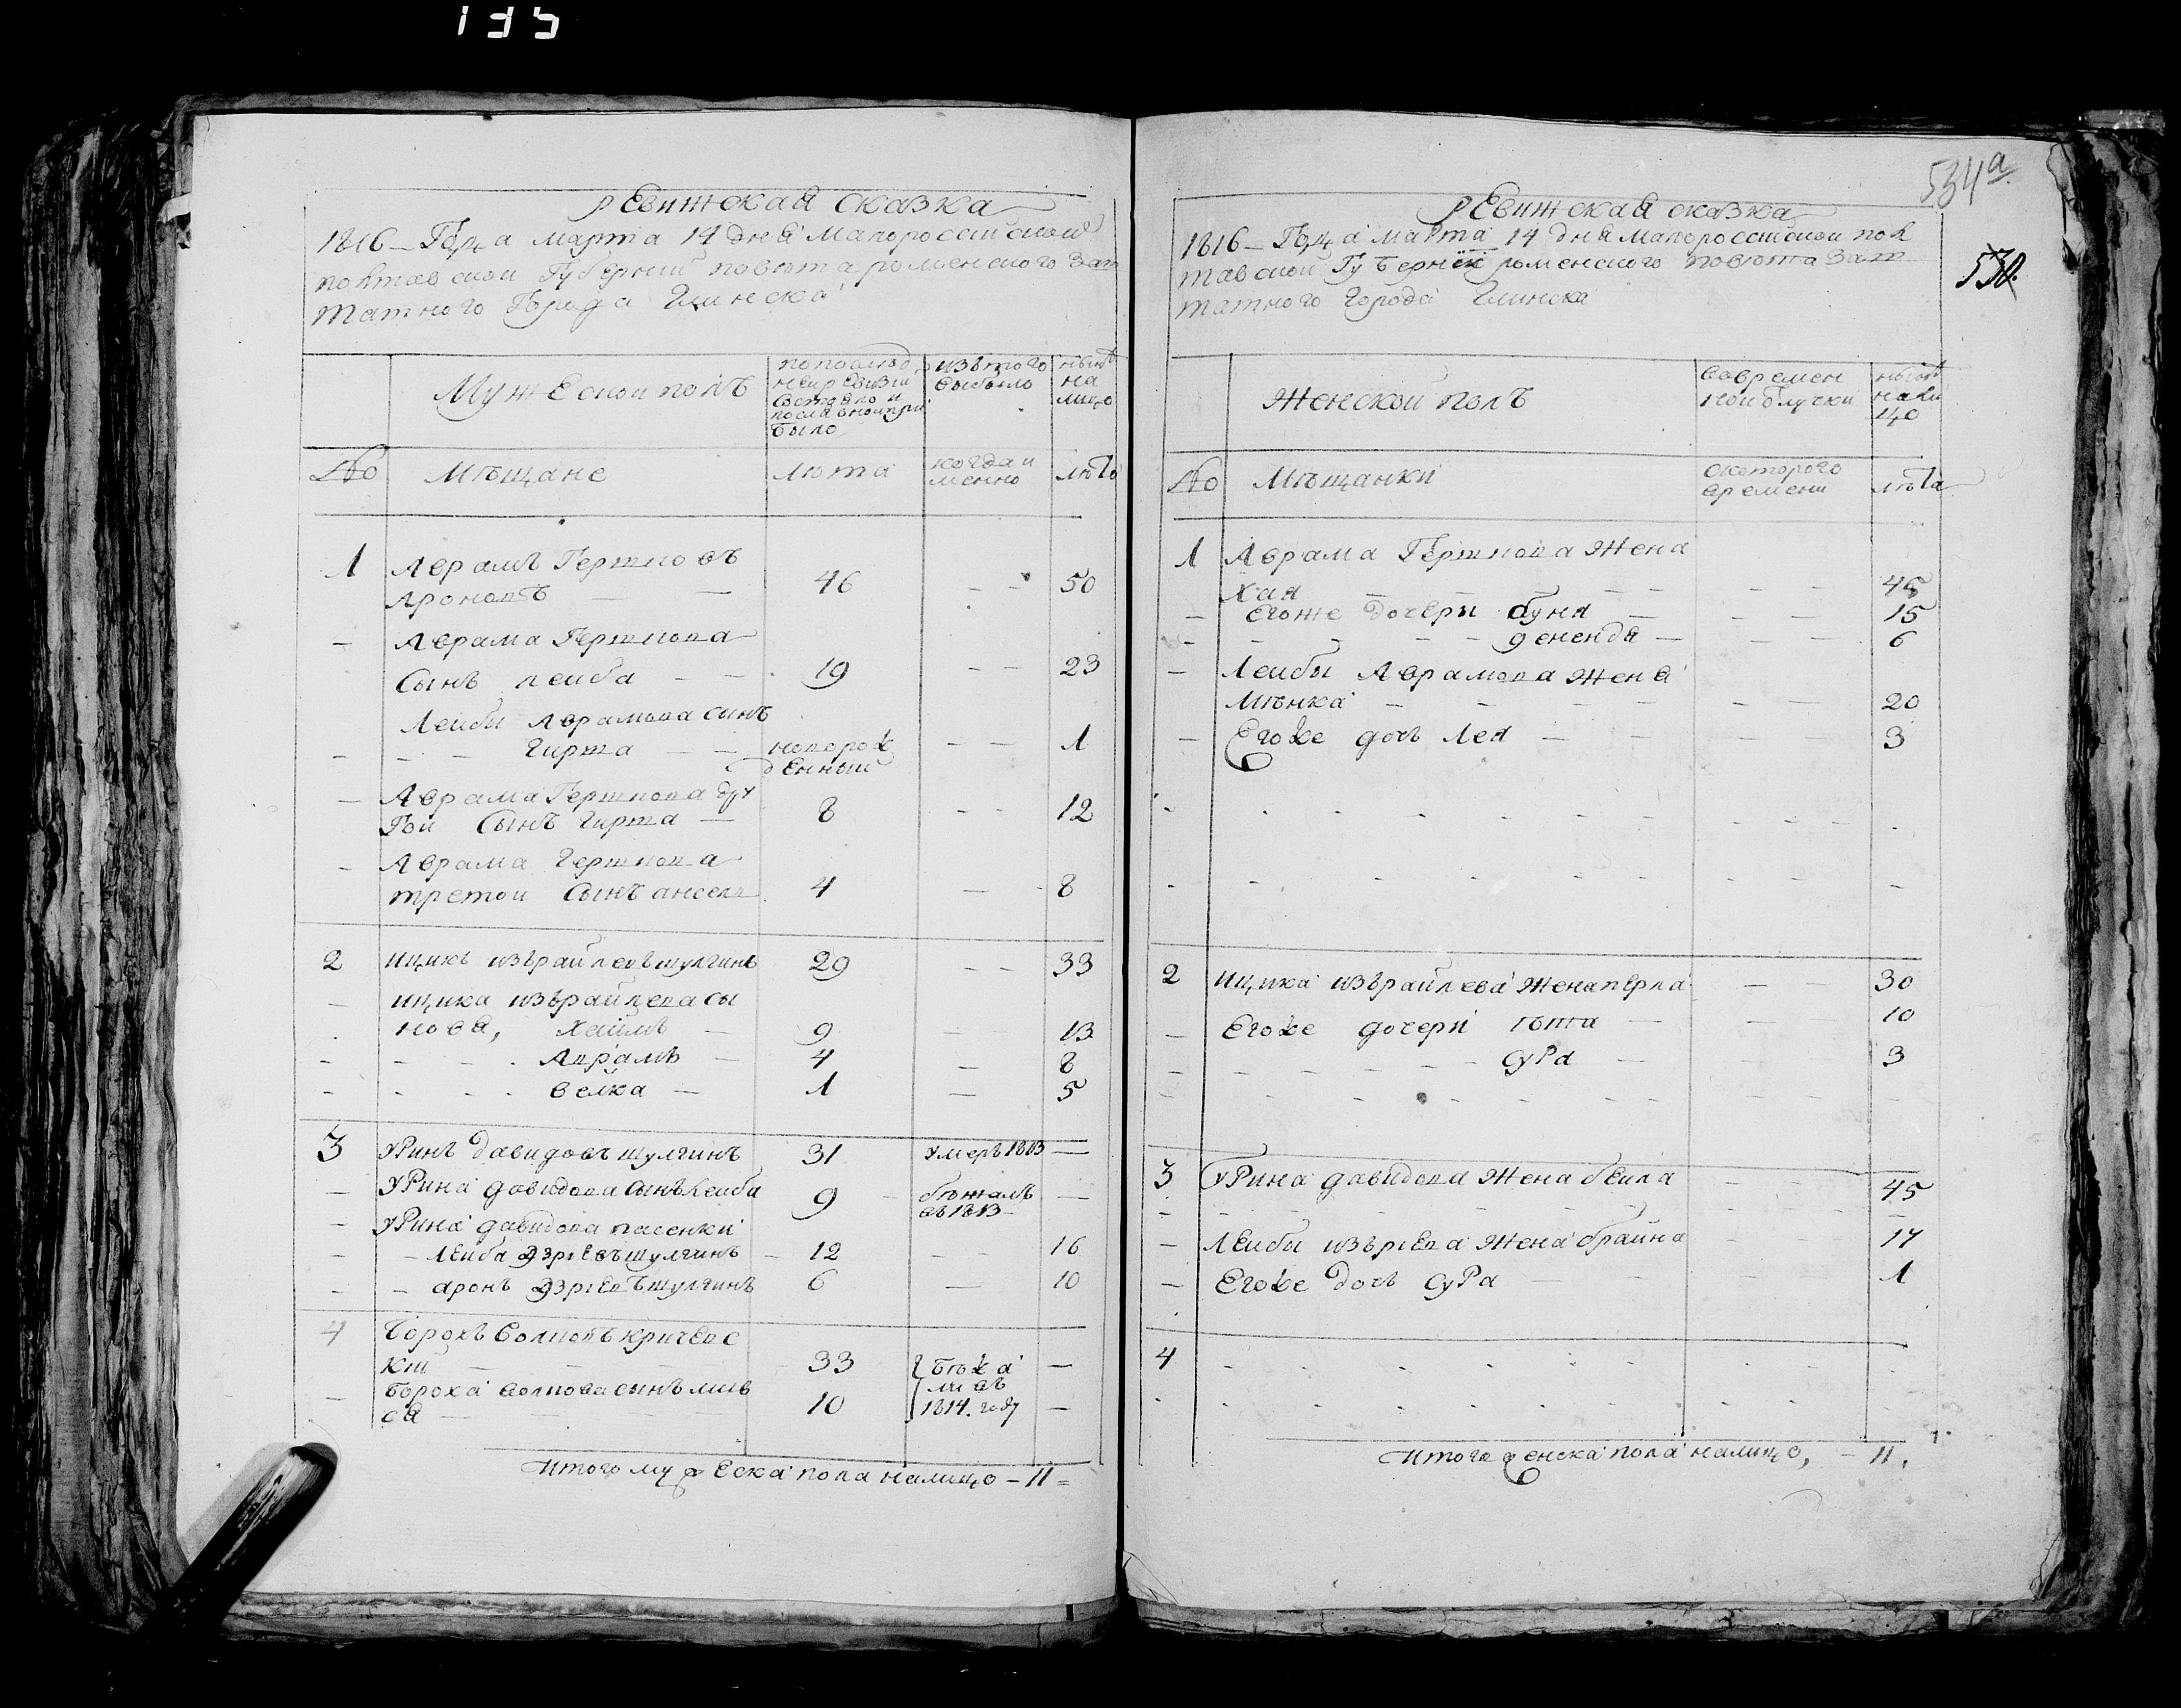 135
рЕвижская сказка
1816 – Года марта 14 дня Малороссийской
полтавской Губернии повѣта роменского Заш
татного Города Глинска
Мужеской полъ
по послѣд
ней рЕвизи
состояло и
после оной при
было
изъ того
выбыло
нынѣ
на
лицо
No
мѣщане
лѣта
когда и
менно
лѣта
1 Аврамъ Гершковъ
Ароновъ — — 46 — — 50
— Аврама Гершкова
Сынъ леиба — — 19 — — 23
Леибы Аврамова сынъ
— — — Гирша — — новорож — — 1
дЕнный
— Аврама Гершкова дру
Гои Сынъ Гирша — 8 — — 12
— Аврама Гершкова
третои Сынъ ансель 4 — 8
2 ицикъ изърайлевъ шулгинъ 29 — — 33
— ицика изърайлева сы
новя, Хаимъ — 9 — 13
— — — Аврамъ — 4 — 8
— — — велка — 1 — 5
3 УРинъ Давидовъ шулгинъ 31 умеръ 1813 —
— УРина давидова сынъ Леиба 9 бѣжалъ —
въ 1813
— УРина давидова пасенки
— — лЕиба Изриевъ шулгинъ — 12 — 16
— — аронъ Изриевъ шулгинъ 6 — 10
4 Борохъ Волковъ кричЕвс
кии — 33 бѣжа —
— Бороха волкова сынъ мив 10 ли въ
ся — 1814. году —
Итого мужЕска пола налицо – 11 =
534а
530.
рЕвижская сказка
1816 – Года марта 14 дня малороссийской пол
тавской Губернии роменского повѣта Заш
татного города Глинска
Женской полъ
Во времен
ной отлучки
нынѣ
на ли
цо
No
Мѣщанки
с которого
времени
лѣта
1 Аврама Гершкова Жена
Хая — — — 45
— Егоже дочери буня — — — 15
— — — — — дененда — — — 6
— Леибы Аврамова жена
Мѣнка — — — — — 20
— Егоже дочъ лея — — — 3
2 Ицика изърайлева жена пЕрла — — 30
— Егоже дочери гѣта — — 10
— — — — — СуРа — — 3
3 УРина давидова Жена бЕила — — 45
— Леибы изъриЕва Жена брайна — — 17
— Егоже дочъ суРа — — 1
4
Итого женска пола налицо, – 11.